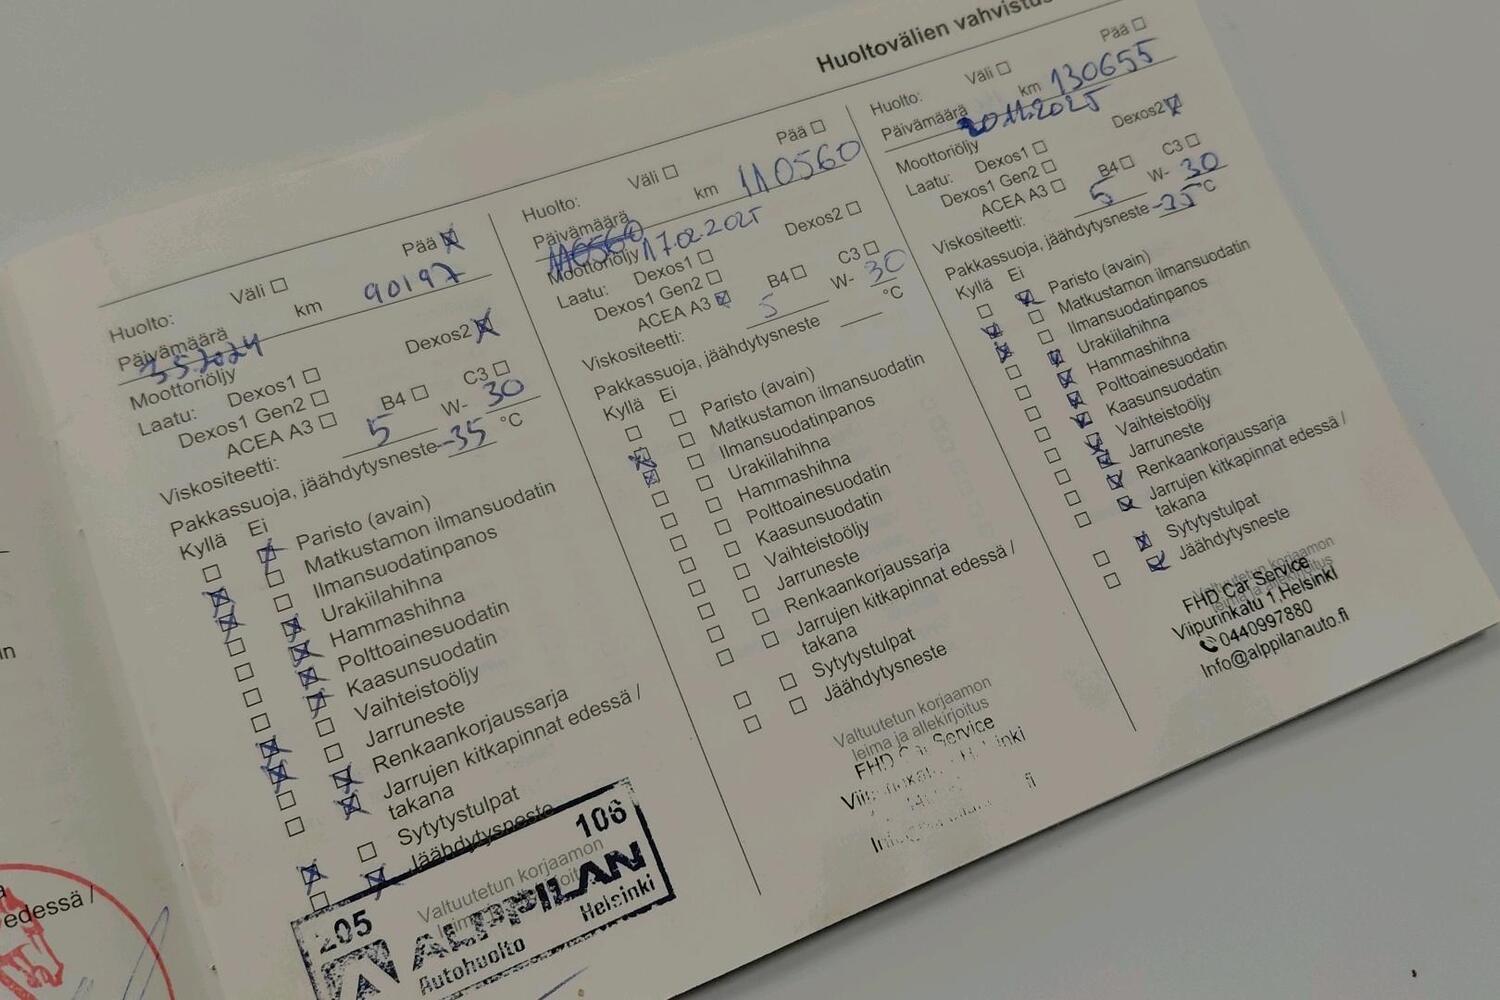 Huoltovälien vahvistus
Huolto:
Väli
Pää
Päivämäärä
km 90197
3.5.2024
Moottoriöljy
Laatu:
Dexos1
Dexos2
Dexos1 Gen2
ACEA A3
B4
C3
Viskositeetti:
5
W- 30
Pakkassuoja, jäähdytysneste -35 °C
Kyllä
Ei
Paristo (avain)
Matkustamon ilmansuodatin
Ilmansuodatinpanos
Urakiilahihna
Hammashihna
Polttoainesuodatin
Kaasunsuodatin
Vaihteistoöljy
Jarruneste
Renkaankorjaussarja
Jarrujen kitkapinnat edessä /
takana
Sytytystulpat
Jäähdytysneste
Valtuutetun korjaamon
205
106
ALPPILAN
Autohuolto
Helsinki
Huolto:
Väli
Pää
Päivämäärä
km 110560
110560 17.02.2025
Moottoriöljy
Laatu:
Dexos1
Dexos2
Dexos1 Gen2
ACEA A3
B4
C3
Viskositeetti:
5
W- 30
Pakkassuoja, jäähdytysneste
°C
Kyllä
Ei
Paristo (avain)
Matkustamon ilmansuodatin
Ilmansuodatinpanos
Urakiilahihna
Hammashihna
Polttoainesuodatin
Kaasunsuodatin
Vaihteistoöljy
Jarruneste
Renkaankorjaussarja
Jarrujen kitkapinnat edessä /
takana
Sytytystulpat
Jäähdytysneste
Valtuutetun korjaamon
leima ja allekirjoitus
FHD Car Service
Huolto:
Väli
Pää
Päivämäärä
km 130655
20.11.2025
Moottoriöljy
Laatu:
Dexos1
Dexos2
Dexos1 Gen2
ACEA A3
B4
C3
Viskositeetti:
5
W- 30
Pakkassuoja, jäähdytysneste -35 °C
Kyllä
Ei
Paristo (avain)
Matkustamon ilmansuodatin
Ilmansuodatinpanos
Urakiilahihna
Hammashihna
Polttoainesuodatin
Kaasunsuodatin
Vaihteistoöljy
Jarruneste
Renkaankorjaussarja
Jarrujen kitkapinnat edessä /
takana
Sytytystulpat
Jäähdytysneste
Valtuutetun korjaamon
leima ja allekirjoitus
FHD Car Service
Viipurinkatu 1,Helsinki
0440997880
Info@alppilanauto.fi
edessä /